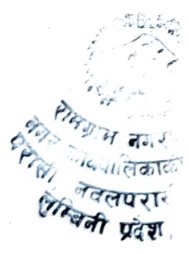 रामग्राम नगर
नगर कार्यपालिकाको
परासी नवलपरासी
लुम्बिनी प्रदेश